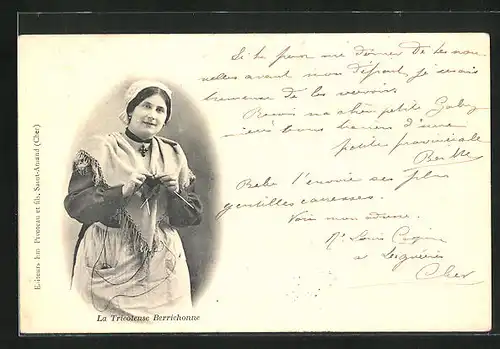 Si tu peux me donner de tes nou-
velles avant mon départ, je serais
heureuse de les recevoir.
Reçois ma chère petite Gaby
bons baisers d'une
petite provinciale
Berthe
Bebe t'envoie ses plus
gentilles caresses.
Voici mon adresse
Louis
a
Cher
Editeurs Imp. Pivoteau et fils, Saint-Amand (Cher)
La Tricoteuse Berrichonne